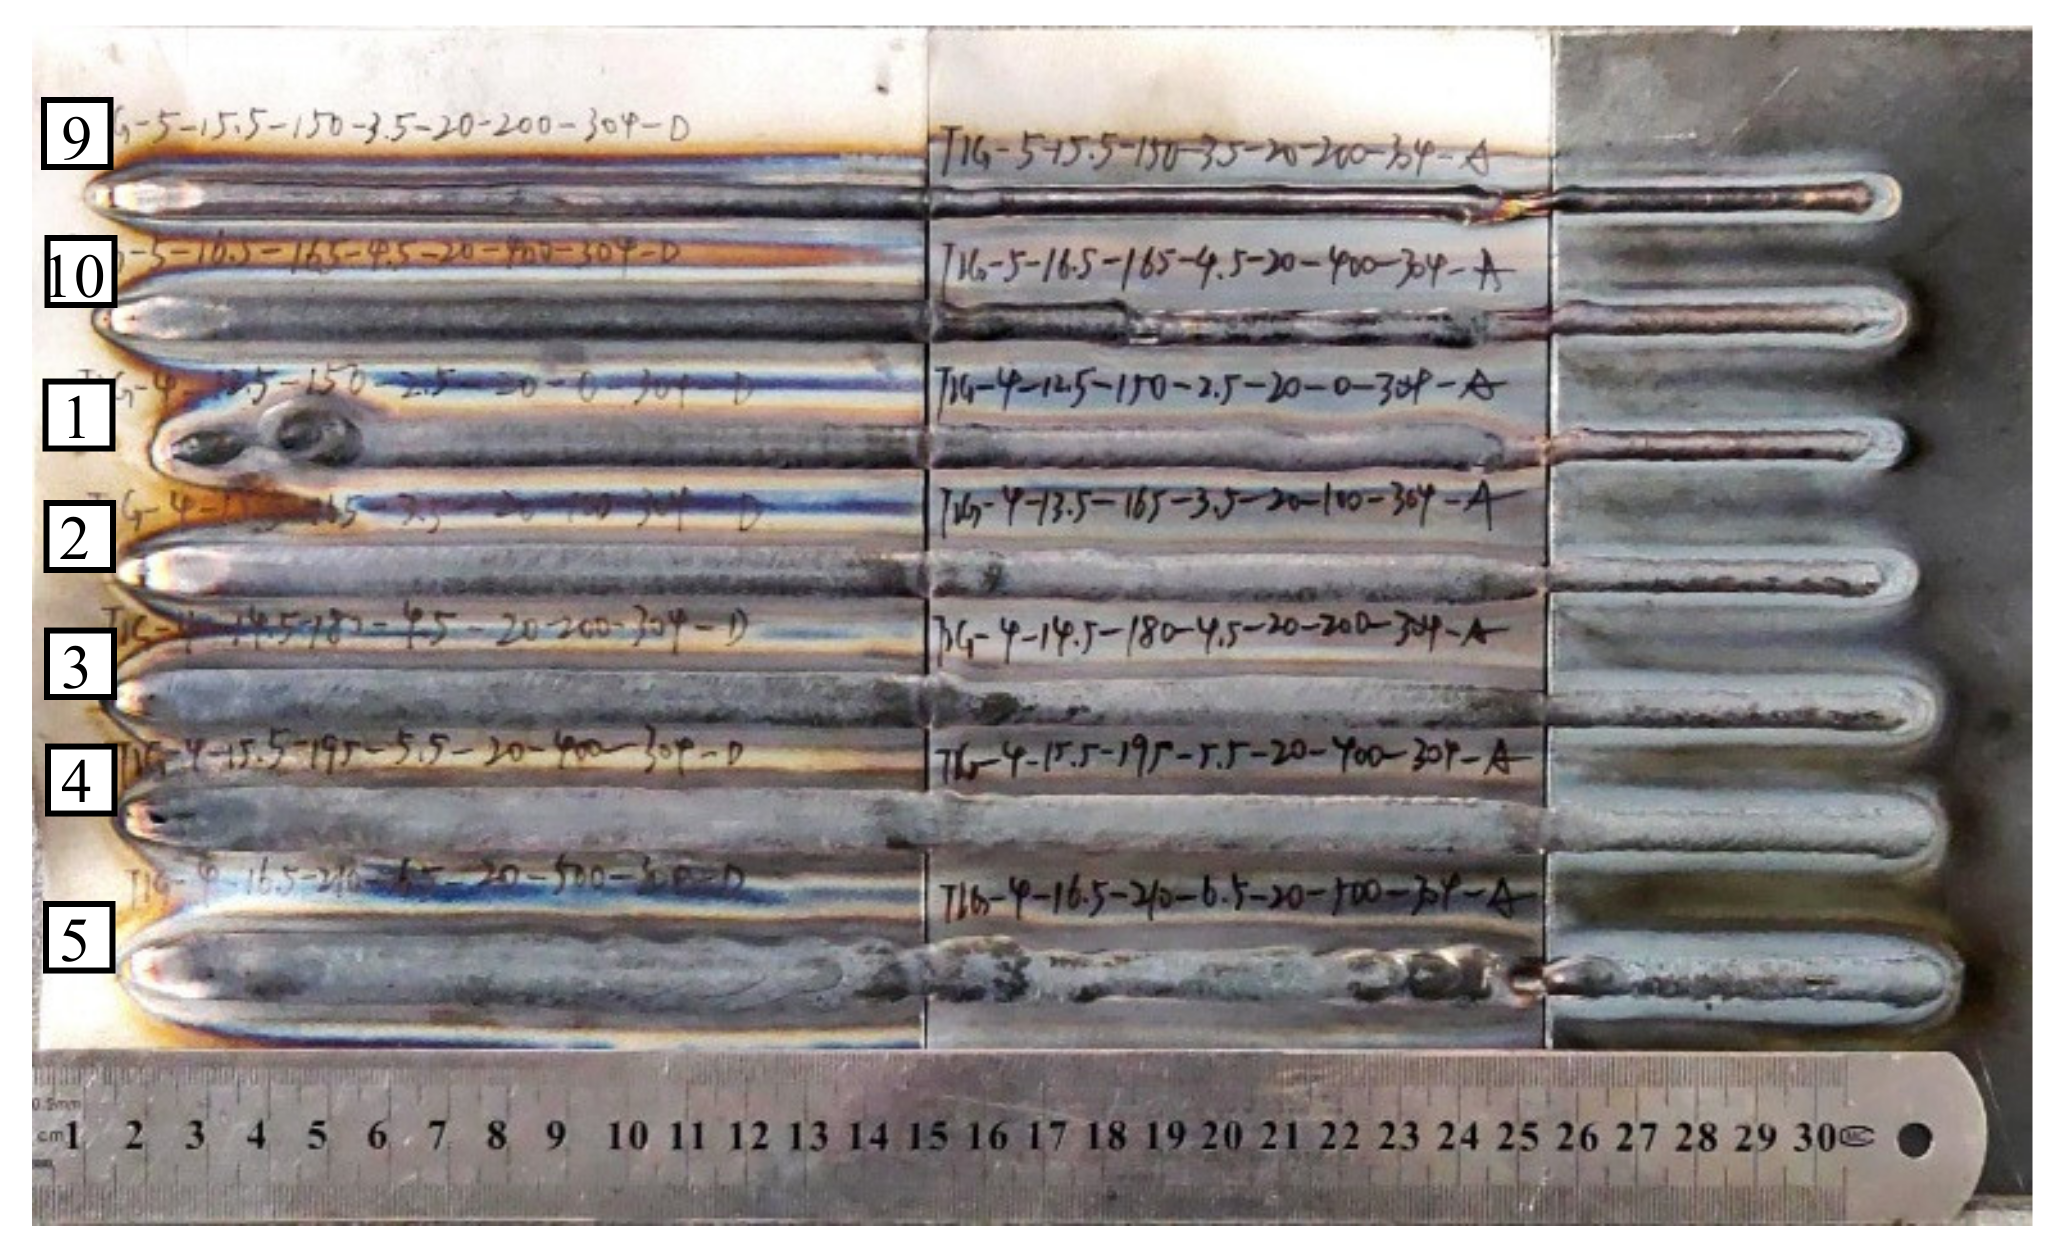 9
G-5-15.5-150-3.5-20-200-304-D
TIG-5-15.5-150-3.5-20-200-304-A
10
-5-16.5-165-4.5-20-400-304-D
TIG-5-16.5-165-4.5-20-400-304-A
1
TIG-4-12.5-150-2.5-20-0-304-D
TIG-4-12.5-150-2.5-20-0-304-A
2
TIG-4-13.5-165-3.5-20-100-304-D
TIG-4-13.5-165-3.5-20-100-304-A
3
TIG-4-14.5-180-4.5-20-200-304-D
TIG-4-14.5-180-4.5-20-200-304-A
4
TIG-4-15.5-195-5.5-20-400-304-D
TIG-4-15.5-195-5.5-20-400-304-A
5
TIG-4-16.5-210-6.5-20-500-304-D
TIG-4-16.5-210-6.5-20-500-304-A
0.5mm
cm 1 2 3 4 5 6 7 8 9 10 11 12 13 14 15 16 17 18 19 20 21 22 23 24 25 26 27 28 29 30 MC